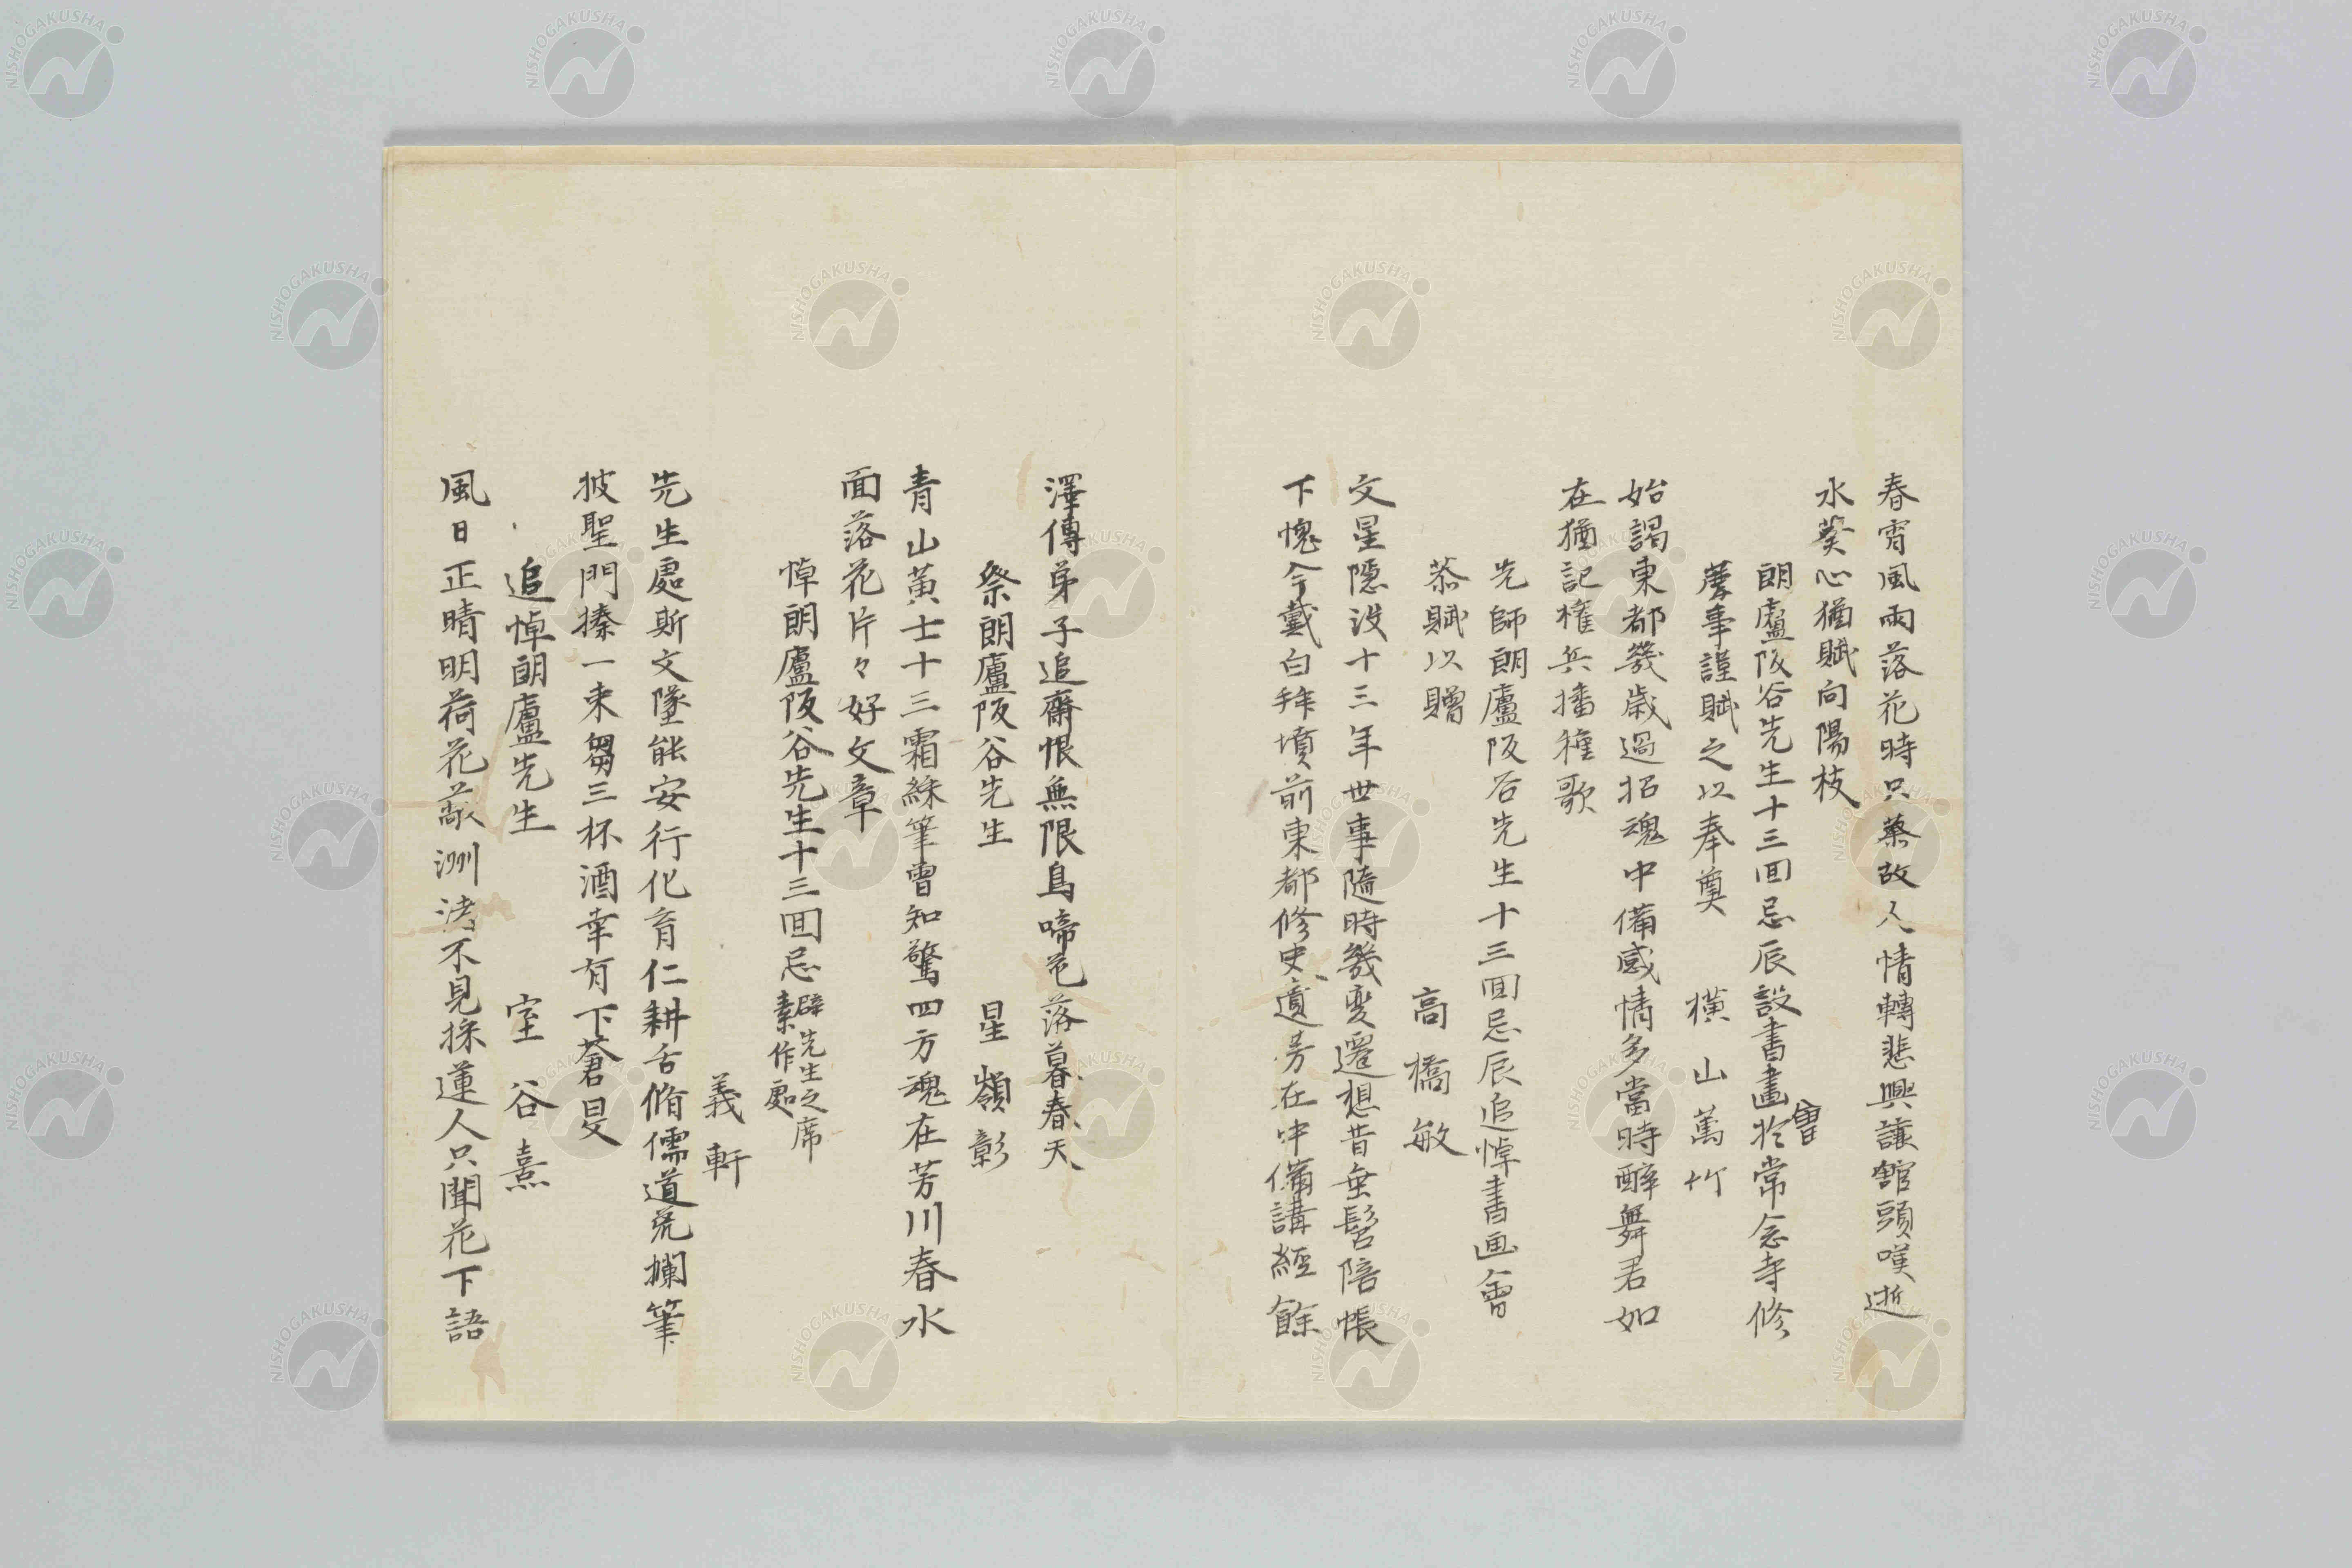 春宵風雨落花時只藥故人情轉悲興讓舘頭嘆逝
水葵心猶賦向陽枝
朗廬阪谷先生十三回忌辰設書畫會於常念寺修
薦事謹賦之以奉奠 橫山萬竹
始謁東都幾歲過招魂中備感情多當時醉舞君如
在猶記權兵播種歌
先師朗廬阪谷先生十三回忌辰追悼書画會
恭賦以贈 高橋敏
文星隱没十三年世事隨時幾变遷想昔垂髫陪帳
下愧今戴白拜墳前東都修史遺芳在中備講經餘
澤傳弟子追齋恨無限鳥啼花落暮春天
祭朗廬阪谷先生 星嶺彰
青山黃土十三霜綵筆曾知驚四方魂在芳川春水
面落花片々好文章
悼朗廬阪谷先生十三回忌 辟先生之席
素作處
義軒
先生處斯文墜能安行化育仁耕舌脩儒道荒攔筆
披聖門搸一束芻三杯酒幸有下蒼旻
追悼朗廬先生 室谷熹
風日正晴明荷花蔽洲渚不見採蓮人只聞花下語
NISHOGAKUSHA